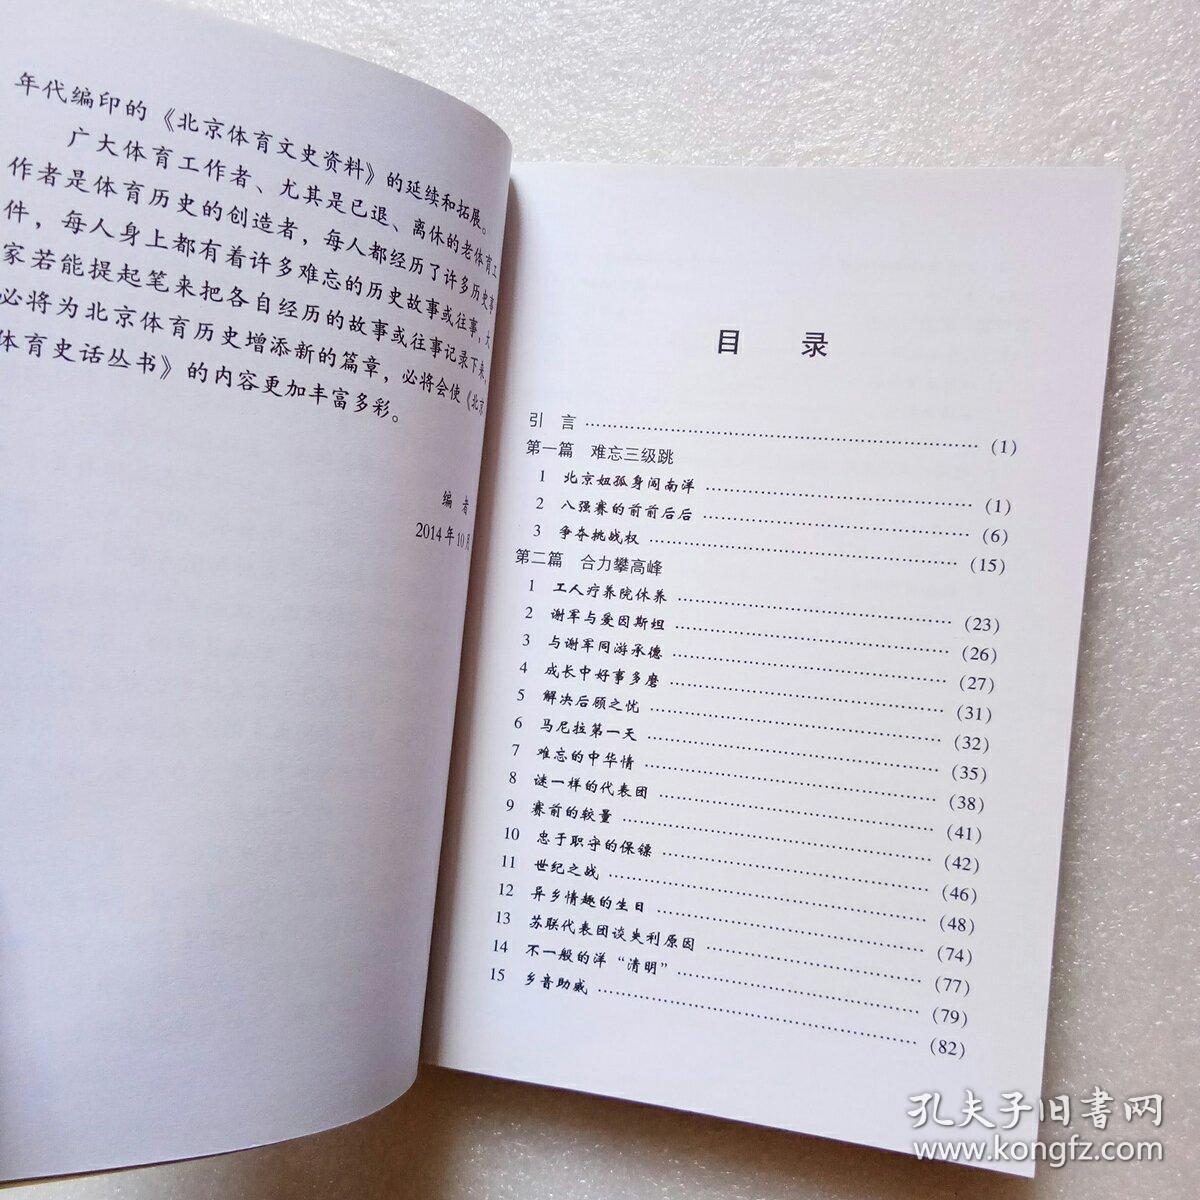 年代编印的《北京体育文史资料》的延续和拓展。
广大体育工作者、尤其是已退、离休的老体育工
作者是体育历史的创造者，每人都经历了许多历史事
件，每人身上都有着许多难忘的历史故事或往事，大
家若能提起笔来把各自经历的故事或往事记录下来，
必将为北京体育历史增添新的篇章，必将会使《北京
体育史话丛书》的内容更加丰富多彩。
编 者
2014年10月
目 录
引 言 …… (1)
第一篇 难忘三级跳
1 北京妞孤身闯南洋 …… (1)
2 八强赛的前前后后 …… (6)
3 争夺挑战权 …… (15)
第二篇 合力攀高峰
1 工人疗养院休养 …… (23)
2 谢军与爱因斯坦 …… (26)
3 与谢军同游承德 …… (27)
4 成长中好事多磨 …… (31)
5 解决后顾之忧 …… (32)
6 马尼拉第一天 …… (35)
7 难忘的中华情 …… (38)
8 谜一样的代表团 …… (41)
9 赛前的较量 …… (42)
10 忠于职守的保镖 …… (46)
11 世纪之战 …… (48)
12 异乡情趣的生日 …… (74)
13 苏联代表团谈失利原因 …… (77)
14 不一般的洋“清明” …… (79)
15 乡音助威 …… (82)
孔夫子旧书网
www.kongfz.com